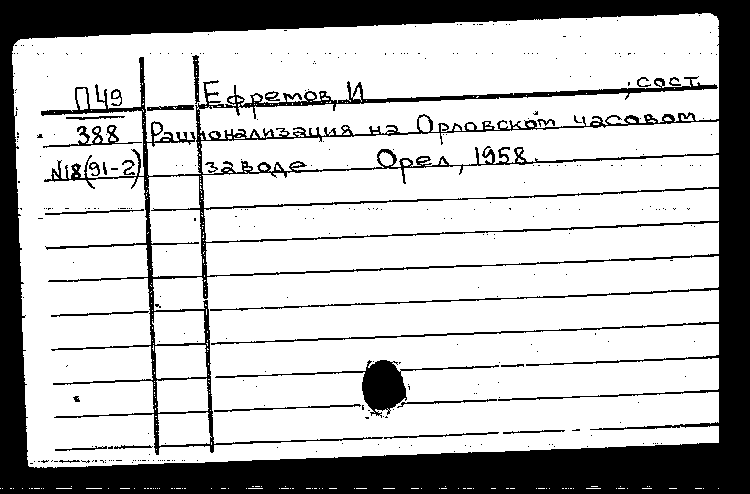 П49 Ефремов, И ; сост.
388 Рационализация на Орловском часовом
N18(91-2) заводе Орел, 1958.